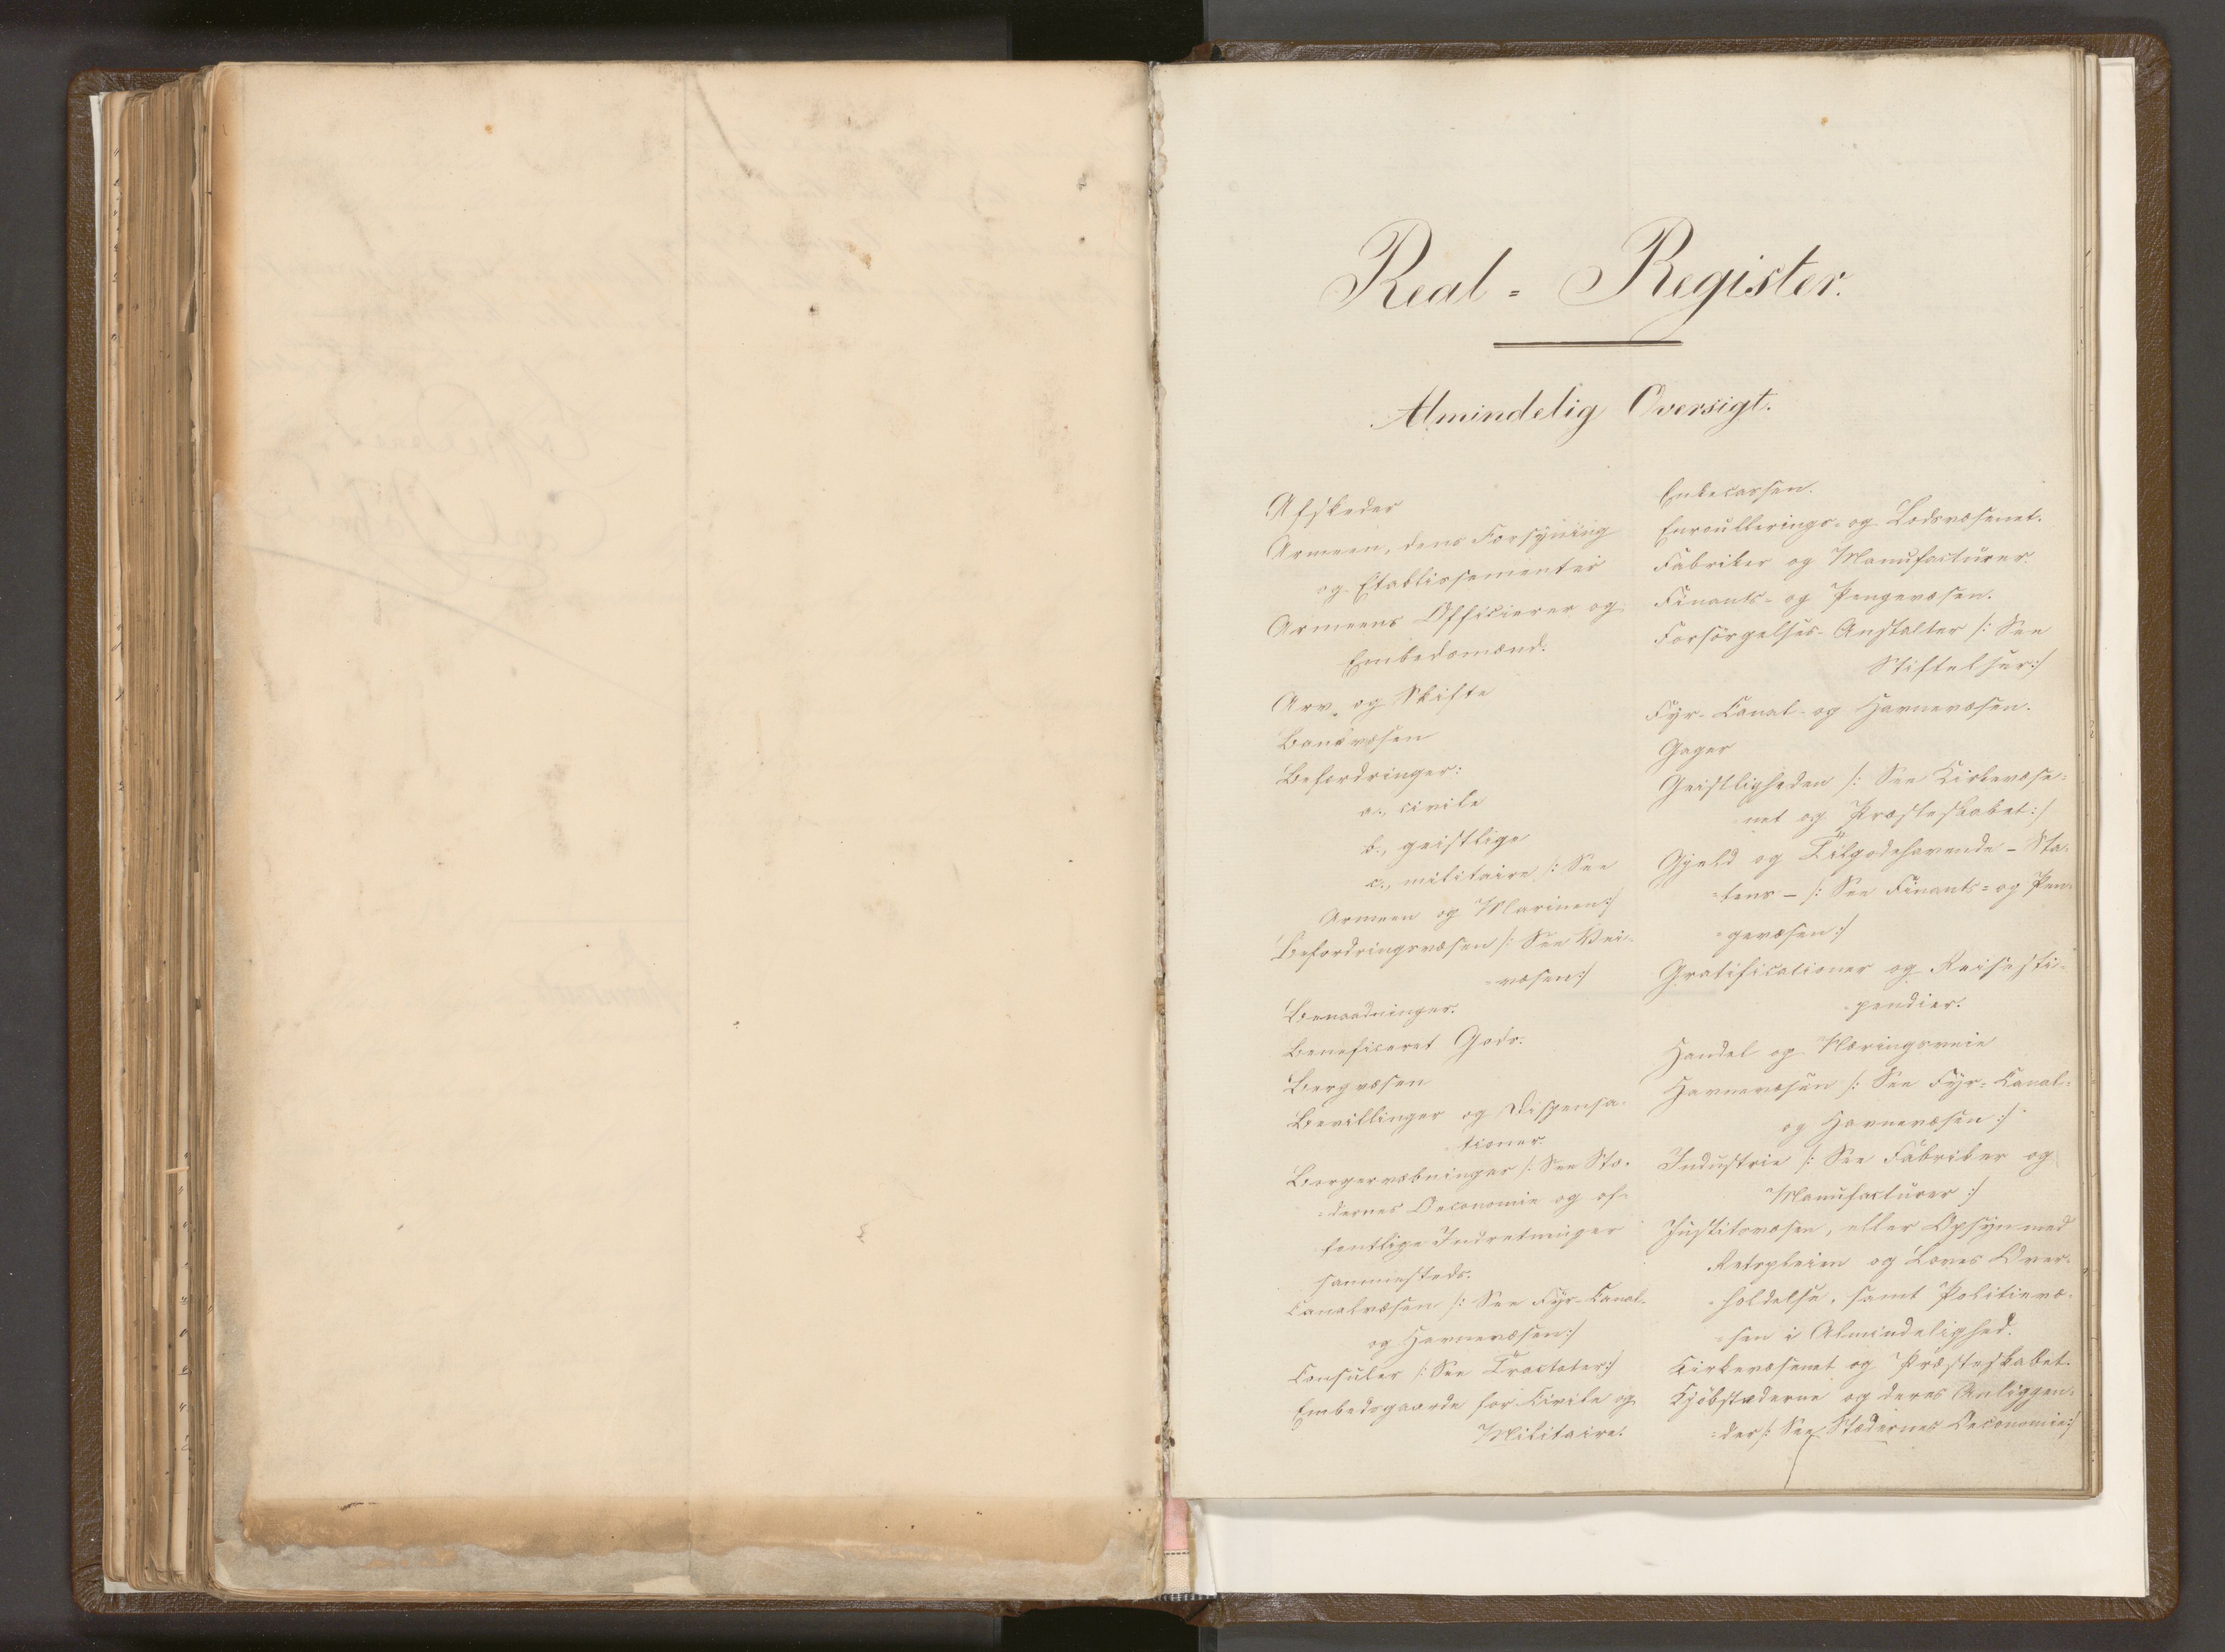 Real- Register.
Almindelig Oversigt.
Afskeder
Armeen, dens Forsyning
og Etablissementer
Armeens Officierer og
Embedsmænd.
Arv og Skifte
Bankvæsen
Befordringer:
a., civile
b., geistlige
c., militaire /: See
Armeen og Marinen :/
Befordringsvæsen /: See Vei-
=væsen :/
Benaadninger.
Beneficeret Gods.
Bergvæsen
Bevillinger og Dispensa-
tioner.
Borgervæbninger /: See Stæ-
=dernes Oeconomie og of-
fentlige Indretninger
sammesteds.
Canalvæsen /: See Fyr- Canal-
og Havnevæsen :/
Consuler /: See Tractater :/
Embedsgaarde for Civile og
Militaire.
Enkecassen.
Enroullerings- og Lodsvæsenet.
Fabriker og Manufacturer.
Finants- og Pengevæsen.
Forsörgelses- Anstalter /: See
Stiftelser :/
Fyr- Canal- og Havnevæsen.
Gager
Geistligheden /: See Kirkevæse-
net og Præsteskabet :/
Gjeld og Tilgodehavende - Sta-
=tens - /: See Finants- og Pen-
=gevæsen :/
Gratificationer og Reisesti-
pendier.
Handel og Næringsveie
Havnevæsen /: See Fyr- Canal-
og Havnevæsen :/
Industrie /: See Fabriker og
Manufacturer :/
Justitsvæsen, eller Opsyn med
Retspleien og Loves Over-
=holdelse, samt Politievæ-
=sen i Almindelighed.
Kirkevæsenet og Præsteskabet.
Kjöbstæderne og deres Anliggen-
=der /: See Stædernes Oeconomie :/